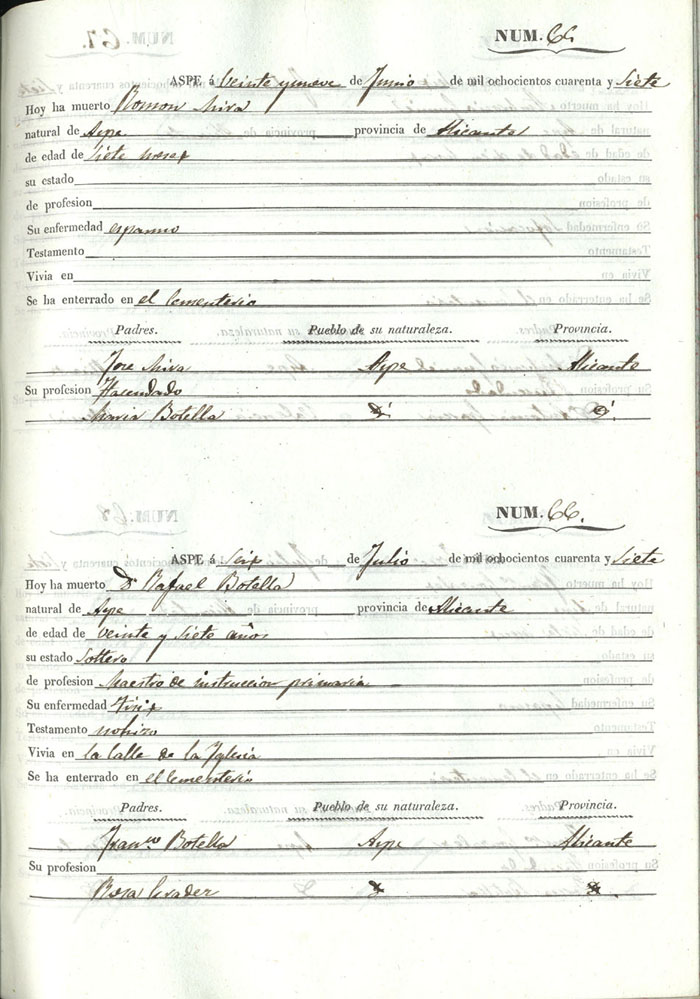 NUM. 66.
ASPE á Veinte y nueve de Junio de mil ochocientos cuarenta y Siete
Hoy ha muerto Ramon Mira
natural de Aspe provincia de Alicante
de edad de Siete meses
su estado
de profesion
Su enfermedad espasmo
Testamento
Vivia en
Se ha enterrado en el Cementerio
Padres. Pueblo de su naturaleza. Provincia.
Jose Mira Aspe Alicante
Su profesion Hasendado
Maria Botella
NUM. 66.
ASPE á Seis de Julio de mil ochocientos cuarenta y Siete
Hoy ha muerto Dn Rafael Botella
natural de Aspe provincia de Alicante
de edad de veinte y Siete años
su estado Soltero
de profesion Maestro de instruccion primaria
Su enfermedad Tisis
Testamento no hizo
Vivia en la Calle de la Yglesia
Se ha enterrado en el Cementerio
Padres. Pueblo de su naturaleza. Provincia.
Franco Botella Aspe Alicante
Su profesion
Rosa